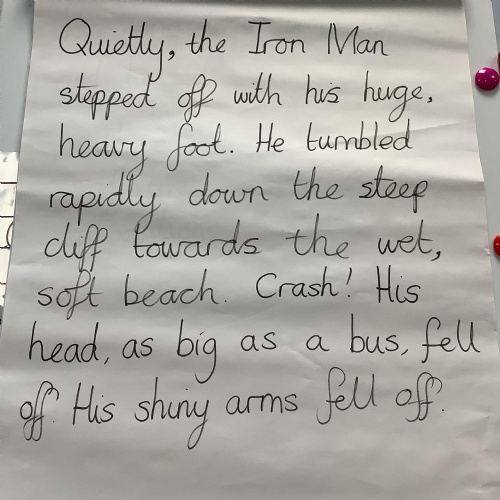 Quietly, the Iron Man
stepped off with his huge,
heavy foot. He tumbled
rapidly down the steep
cliff towards the wet,
soft beach. Crash! His
head, as big as a bus, fell
off. His shiny arms fell off.